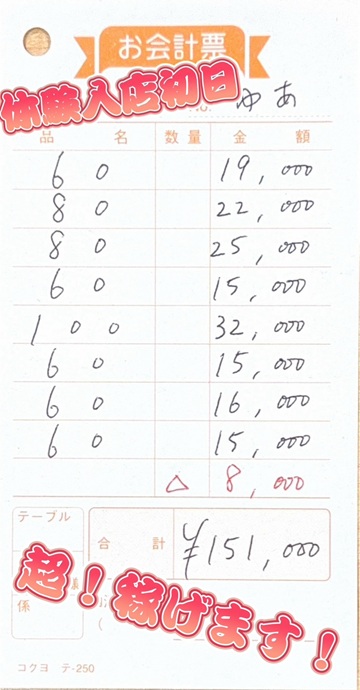 お会計票
体験入店初日
No. ゆあ
品名 数量 金額
60 19,000
80 22,000
80 25,000
60 15,000
100 32,000
60 15,000
60 16,000
60 15,000
△ 8,000
テーブル
合計 ¥151,000
様
係
超!稼げます!
コクヨ テ-250